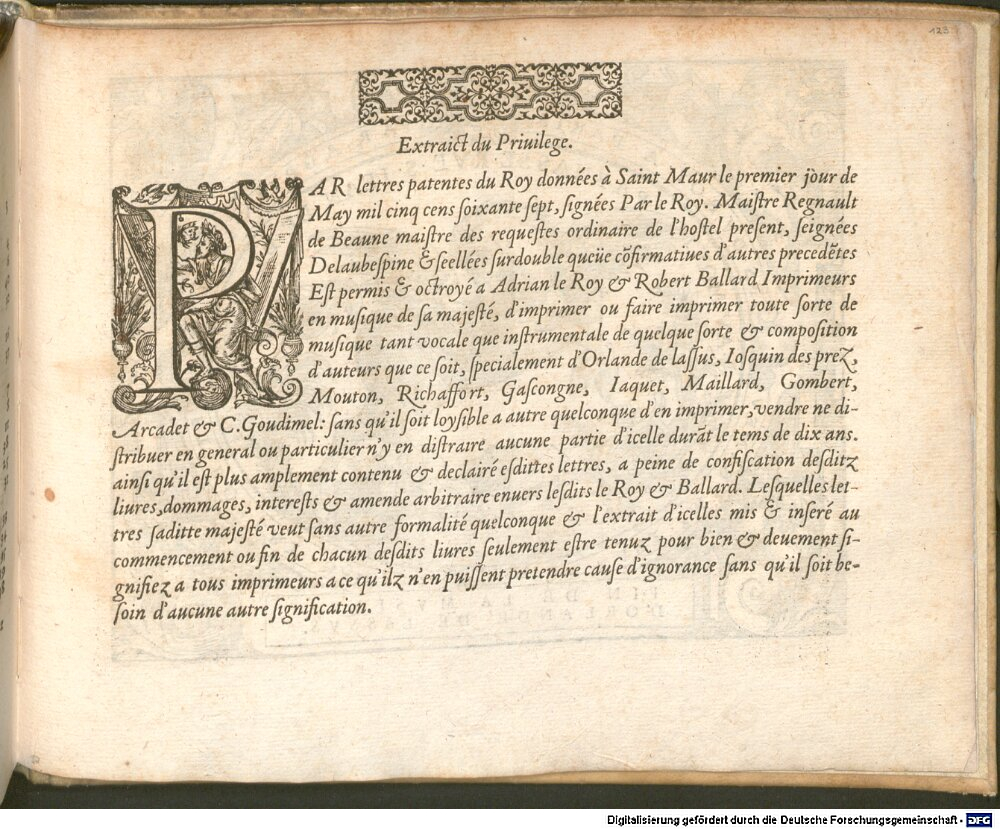 123
Extraict du Priuilege.
PAR lettres patentes du Roy données à Saint Maur le premier jour de
May mil cinq cens ſoixante ſept, ſignées Par le Roy. Maiſtre Regnault
de Beaune maiſtre des requeſtes ordinaire de l'hoſtel preſent, ſeignées
Delaubeſpine & ſeellées ſurdouble queüe cõfirmatiues d'autres precedẽtes
Eſt permis & octroyé a Adrian le Roy & Robert Ballard Imprimeurs
en muſique de ſa majeſté, d'imprimer ou faire imprimer toute ſorte de
muſique tant vocale que inſtrumentale de quelque ſorte & compoſition
d'auteurs que ce ſoit, ſpecialement d'Orlande de laſſus, Ioſquin des prez,
Mouton, Richaffort, Gaſcongne, Iaquet, Maillard, Gombert,
Arcadet & C. Goudimel: ſans qu'il ſoit loyſible a autre quelconque d'en imprimer, vendre ne di-
ſtribuer en general ou particulier n'y en diſtraire aucune partie d'icelle durãt le tems de dix ans.
ainſi qu'il eſt plus amplement contenu & declairé eſdittes lettres, a peine de confiſcation deſditz
liures, dommages, intereſts & amende arbitraire enuers leſdits le Roy & Ballard. Leſquelles let-
tres ſaditte majeſté veut ſans autre formalité quelconque & l'extrait d'icelles mis & inſeré au
commencement ou fin de chacun deſdits liures ſeulement eſtre tenuz pour bien & deuement ſi-
gnifiez a tous imprimeurs a ce qu'ilz n'en puiſſent pretendre cauſe d'ignorance ſans qu'il ſoit be-
ſoin d'aucune autre ſignification.
Digitalisierung gefördert durch die Deutsche Forschungsgemeinschaft - DFG